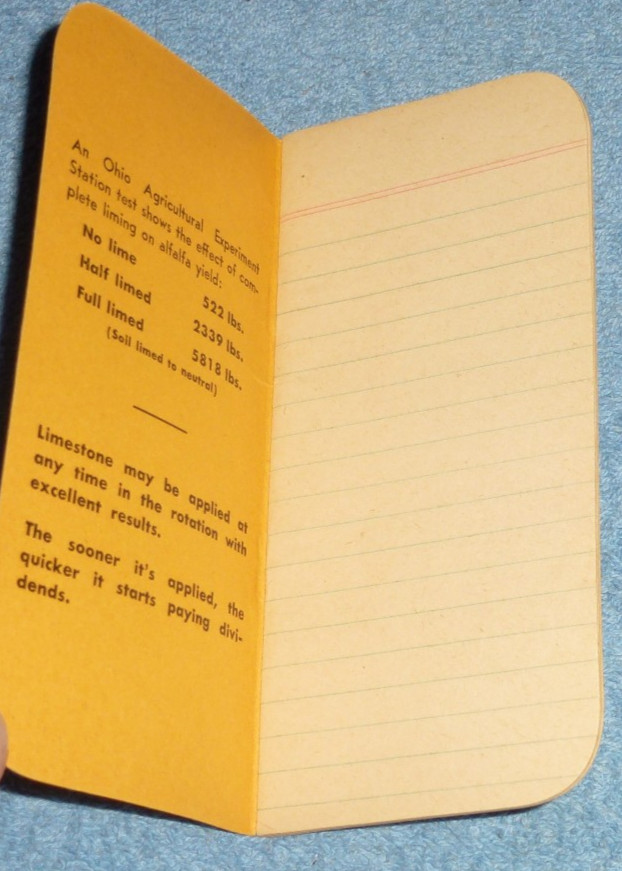 An Ohio Agricultural Experiment
Station test shows the effect of com-
plete liming on alfalfa yield:
No lime 522 lbs.
Half limed 2339 lbs.
Full limed 5818 lbs.
(Soil limed to neutral)
Limestone may be applied at
any time in the rotation with
excellent results.
The sooner it's applied, the
quicker it starts paying divi-
dends.